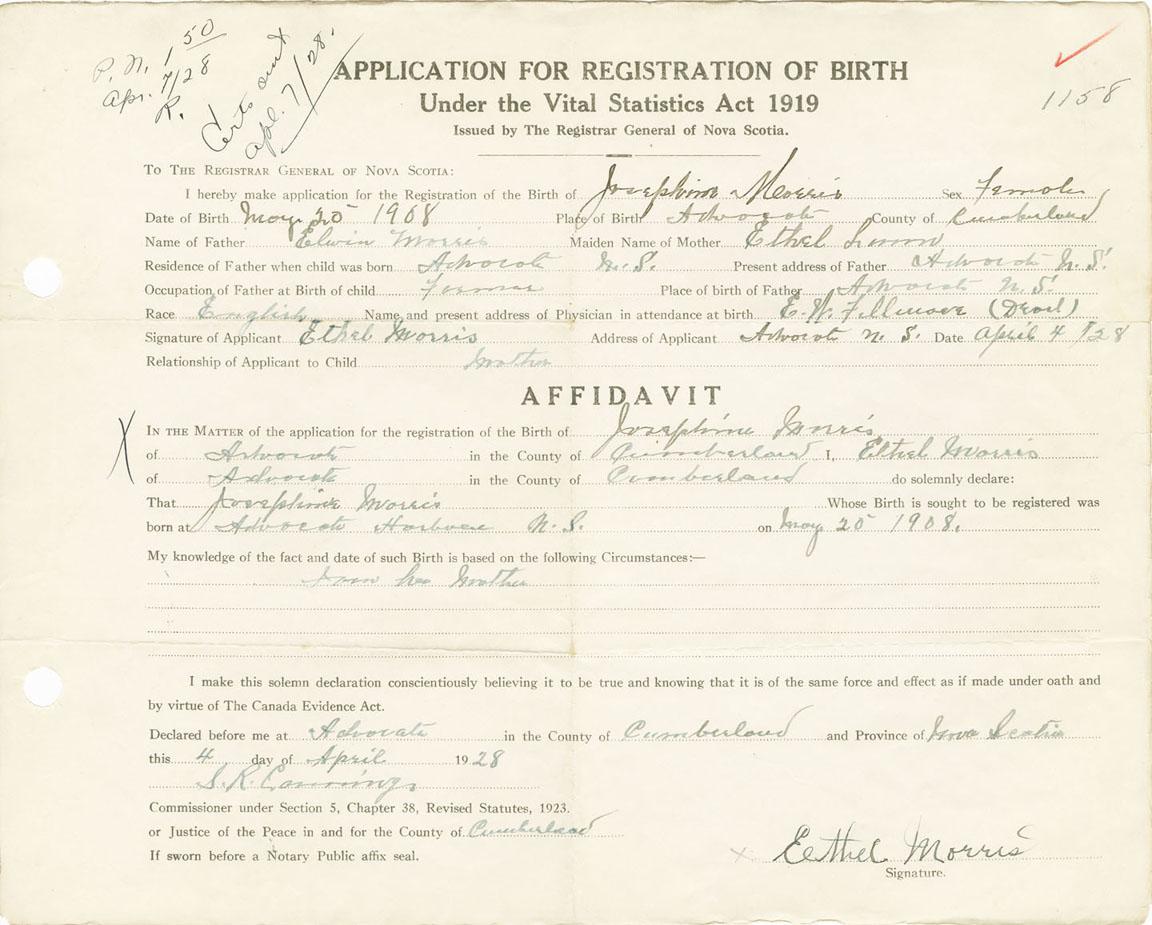 P. N. 1 50
Apr. 7/28
R.
Certs out
apl. 7/28.
1158
APPLICATION FOR REGISTRATION OF BIRTH
Under the Vital Statistics Act 1919
Issued by The Registrar General of Nova Scotia.
TO THE REGISTRAR GENERAL OF NOVA SCOTIA:
I hereby make application for the Registration of the Birth of Josephine Morris Sex Female
Date of Birth May 25 1908 Place of Birth Advocate County of Cumberland
Name of Father Elwin Morris Maiden Name of Mother Ethel
Residence of Father when child was born Advocate N.S. Present address of Father Advocate N.S.
Occupation of Father at Birth of child Farmer Place of birth of Father Advocate N.S.
Race English Name and present address of Physician in attendance at birth E. W. Fillmore (Dead)
Signature of Applicant Ethel Morris Address of Applicant Advocate N. S. Date April 4 1928
Relationship of Applicant to Child Mother
AFFIDAVIT
X
IN THE MATTER of the application for the registration of the Birth of Josephine Morris
of Advocate in the County of Cumberland I, Ethel Morris
of Advocate in the County of Cumberland do solemnly declare:
That Josephine Morris Whose Birth is sought to be registered was
born at Advocate Harbour N.S. on May 25 1908.
My knowledge of the fact and date of such Birth is based on the following Circumstances:—
I am her Mother
I make this solemn declaration conscientiously believing it to be true and knowing that it is of the same force and effect as if made under oath and
by virtue of The Canada Evidence Act.
Declared before me at Advocate in the County of Cumberland and Province of Nova Scotia
this 4 day of April 1928
S. R.
Commissioner under Section 5, Chapter 38, Revised Statutes, 1923.
or Justice of the Peace in and for the County of Cumberland
If sworn before a Notary Public affix seal.
x Eethel Morris
Signature.